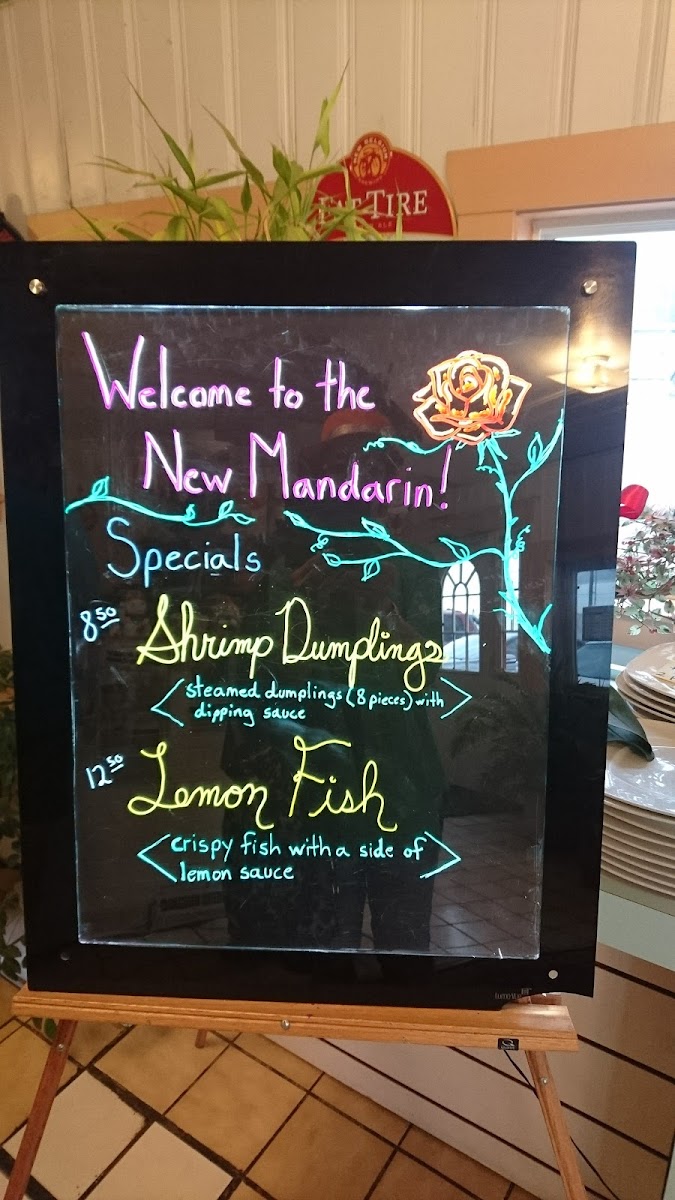 NEW BELGIUM
FAT TIRE
Welcome to the
New Mandarin!
Specials
8.50 Shrimp Dumplings
<steamed dumplings (8 pieces) with
dipping sauce>
12.50 Lemon Fish
<crispy fish with a side of
lemon sauce>